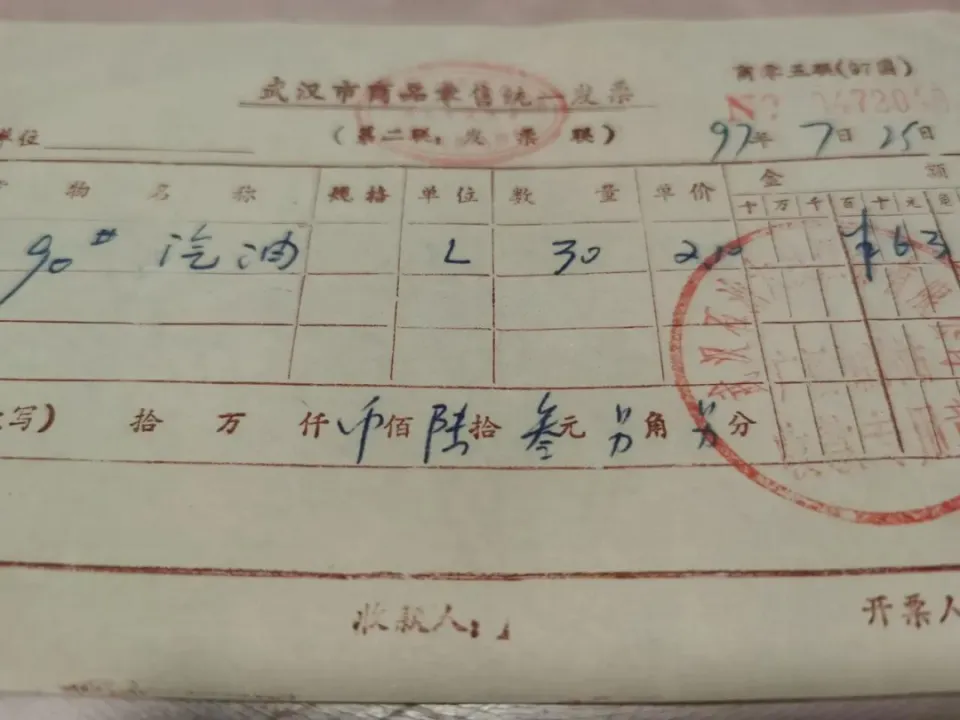 商零五联(97国)
武汉市商品零售统一发票
(第二联:发票联)
单位
97年 7日 25日
货物名称 规格 单位 数量 单价 金额
十万千百十元
90# 汽油 L 30 2.10 ¥63
写) 拾万仟币佰陆拾叁元另角另分
收款人:
开票人